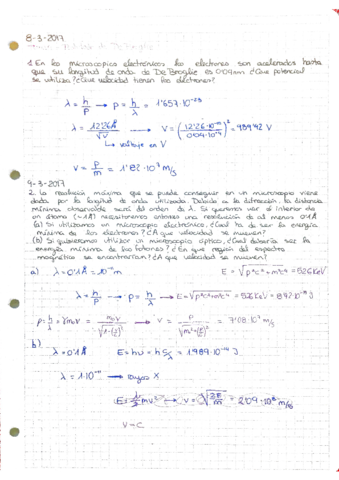 8-3-2017
1. En los microscopios electrónicos los electrones son acelerados hasta
que su longitud de onda de De Broglie es 0'04nm ¿Que potencial
se utiliza? ¿Que velocidad tienen los electrones?
λ = h/p → p = h/λ = 1'657·10⁻²³
λ = 12'26Å/√V → V = (12'26·10⁻¹⁰/0'04·10⁻⁹)² = 939'42 V
↳ voltaje en V
V = p/m = 1'82·10⁷ m/s
9-3-2017
2. La resolución máxima que se puede conseguir en un microscopio viene
dada por la longitud de onda utilizada. Debido a la difracción, la distancia
mínima observable será del orden de λ. Si queremos ver el interior de
un átomo (~1Å) necesitaremos entonces una resolución de al menos 0'1Å
(a) Si utilizamos un microscopio electrónico. ¿Cuál ha de ser la energía
mínima de los electrones? ¿A que velocidad se mueven?
(b) Si quisieramos utilizar un microscopio optico, ¿Cuál debería ser la
energía mínima de los fotones? ¿En que región del espectro
magnético se encontrarían? ¿A que velocidad se mueven?
a) λ = 0'1Å = 10⁻¹¹m E = √p²c²+m²c⁴ = 526KeV
λ = h/p → p = h/λ → E = √p²c²+m²c⁴ = 526 KeV
p = h/λ = γmv = m₀v/√1-(v/c)² → v = p/√m²+(p/c)² = 7'08·10⁷ m/s
b) λ = 0'1Å E = hν = h c/λ = 1.989·10⁻¹⁴ J
λ = 1·10⁻¹¹ → rayos X
V = C